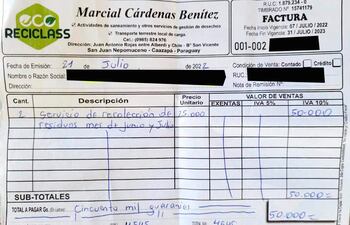 eco
RECICLASS
Marcial Cárdenas Benítez
Actividades de saneamiento y otros servicios de gestión de desechos
Transporte terrestre local de carga.
Cel.: (0985) 824 976
Dirección: Juan Antonio Rojas entre Alberdi y Chile - B° San Vicente
San Juan Nepomuceno - Caazapá - Paraguay
R.U.C. 1.879.234 - 0
TIMBRADO N° 15741179
FACTURA
Fecha Inicio Vigencia: 07 / JULIO / 2022
Fecha Fin Vigencia: 31 / JULIO / 2023
001-002
Fecha de Emisión: 21 de Julio de 2022
Condición de Venta: Contado Crédito
Nombre o Razón Social:
RUC.
Dirección:
Nota de Remisión N°
Cant. Descripción Precio Unitario VALOR DE VENTAS
EXENTAS IVA 5% IVA 10%
2 Servicio de recolección de 25.000 50.000
residuos mes de Junio y Julio
SUB-TOTALES 50.000=
TOTAL A PAGAR Gs. Cincuenta mil guaranies
50.000=
4545